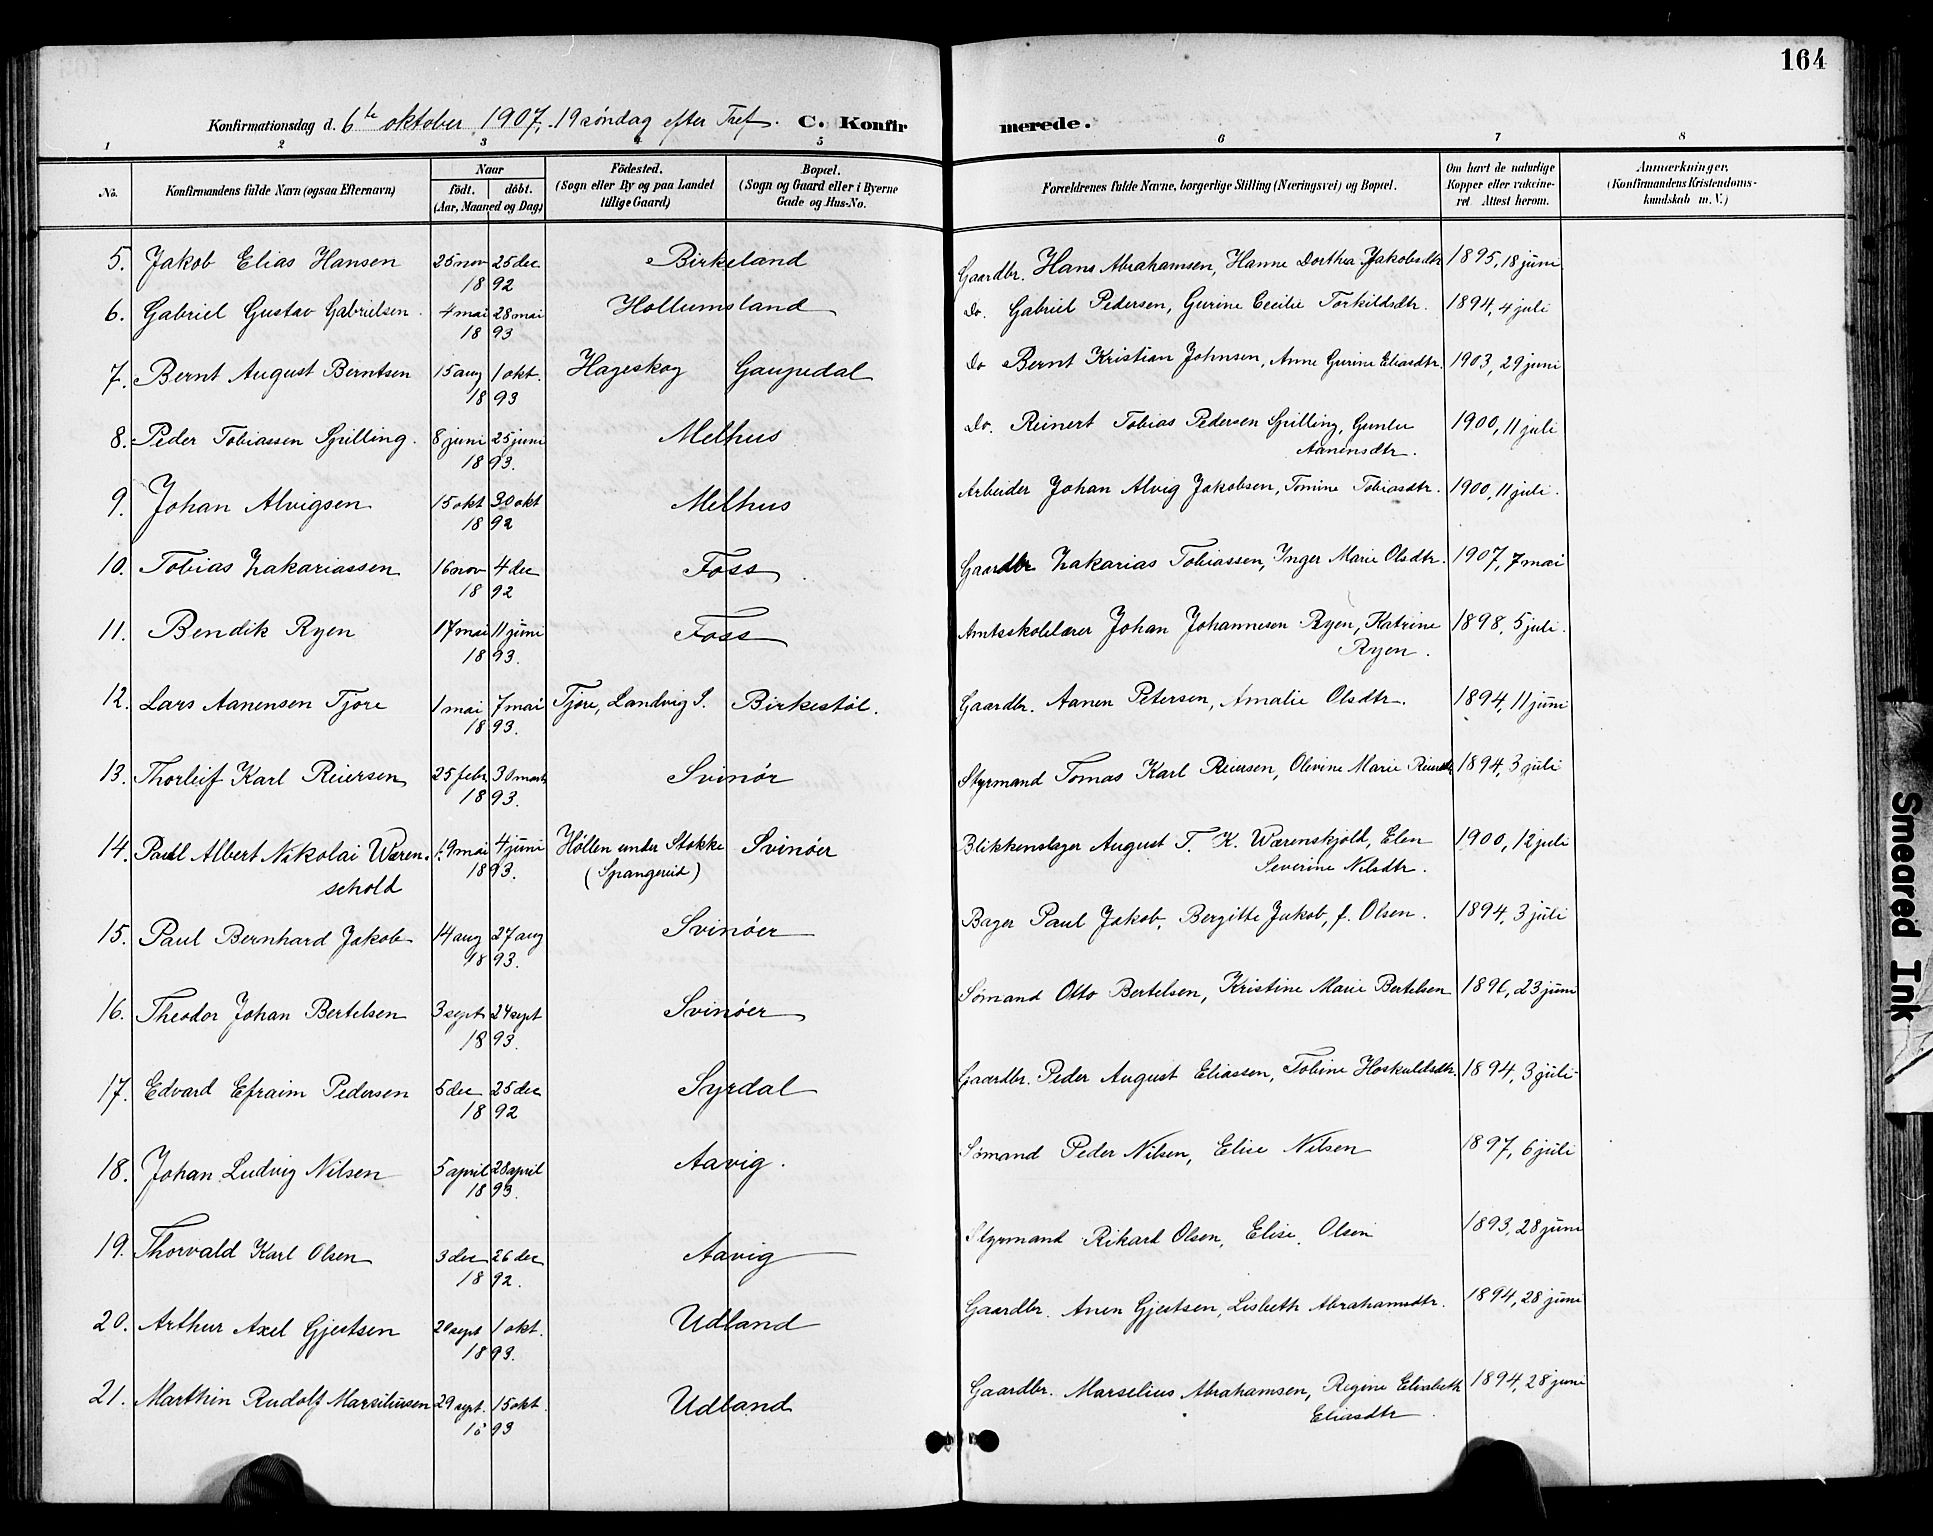 164
Konfirmationsdag d. 6te oktober 1907, 19 søndag efter Tref. C. Konfir merede.
1 2 3 4 5 6 7 8
No. Konfirmandens fulde Navn (ogsaa Efternavn) Naar födt. döbt. (Aar, Maaned og Dag) Födested. (Sogn eller By og paa Landet tillige Gaard) Bopæl. (Sogn og Gaard eller i Byerne Gade og Hus-No. Forældrenes fulde Navne, borgerlige Stilling (Næringsvei) og Bopæl. Om havt de naturlige Kopper eller vakcineret Attest herom. Anmærkninger. (Konfirmandens Kristendomskundskab m. V.)
5. Jakob Elias Hansen 25 nov 25 dec 1892 Birkeland Gaardbr. Hans Abrahamsen, Hanne Dorthea Jakobsdtr 1895, 18 juni
6. Gabriel Gustav Gabrielsen. 4 mai 28 mai 1893 Hollumsland Do. Gabriel Pedersen, Gurine Cecilie Torkildsdtr. 1894, 4 juli
7. Bernt August Berntsen 15 aug 1 okt. 1893 Hageskog Gaupedal Do Bernt Kristian Johnsen, Anne Gurine Eliasdtr. 1903, 29 juni
8. Peder Tobiassen Spilling. 8 juni 25 juni 1893. Melhus Do. Reinert Tobias Pedersen Spilling, Gunlu 1900, 11 juli
Aanensdtr.
9. Johan Alvigsen 15 okt 30 okt 1892 Melhus Arbeider Johan Alvig Jakobsen, Tomine Tobiasdtr. 1900, 11 juli.
10. Tobias Zakariassen 16 nov 4 dec 1892 Foss Gaardbr Zakarias Tobiassen, Ynger Marie Olsdtr. 1907, 7 mai
11. Bendik Ryen 17 mai 11 juni 1893. Foss Amtsskolelærer Johan Johannesen Ryen, Katrine 1898, 5 juli.
Ryen.
12. Lars Aanensen Tjore 1 mai 7 mai 1893. Tjøre, Landvig S. Birkestøl. Gaardbr. Aanen Petersen, Amalie Olsdtr. 1894, 11 juni
13. Thorleif Karl Reiersen 25 febr. 30 marts 1893. Svinør Styrmand Tomas Karl Reiersen, Olivine Marie 1894, 3 juli
14. Paul Albert Nikolai Wæren- 19 mai 4 juni 1893. Høllen under Stokke Svinøer Blikkenslager August T. K. Wærenskjold, Elen 1900, 12 juli
schold (Spangereid) Severine Nilsdtr.
15. Paul Bernhard Jakob 14 aug 27 aug 1893. Svinøer Bager Paul Jakob, Bergitte Jakob, f. Olsen. 1894, 3 juli
16. Theodor Johan Bertelsen 3 sept 24 sept 1893. Svinøer Sømand Otto Bertelsen, Kristine Marie Bertelsen 1896, 23 juni
17. Edvard Efraim Pedersen 5 dec 25 dec 1892 Syrdal Gaardbr. Peder August Eliassen, Tobine Hoskuldsdtr. 1894, 3 juli
18. Johan Ludvig Nilsen 5 april 28 april 1893. Aavig. Sømand Peder Nilsen, Elise Nilsen 1897, 6 juli
19. Thorvald Karl Olsen 3 dec 26 dec 1892. Aavig Styrmand Rikard Olsen, Elise Olsen 1893, 28 juni
20. Arthur Axel Gjertsen 20 sept 1 okt. 1893. Udland Gaardbr. Anen Gjertsen, Lisbeth Abrahamsdtr. 1894, 28 juni
21. Marthin Rudolf Marsiliusen 29 sept. 15 okt. 1893 Udland Gaardbr. Marselius Abrahamsen, Regine Elisabeth 1894, 28 juni
Eliasdtr.
Smeared Ink